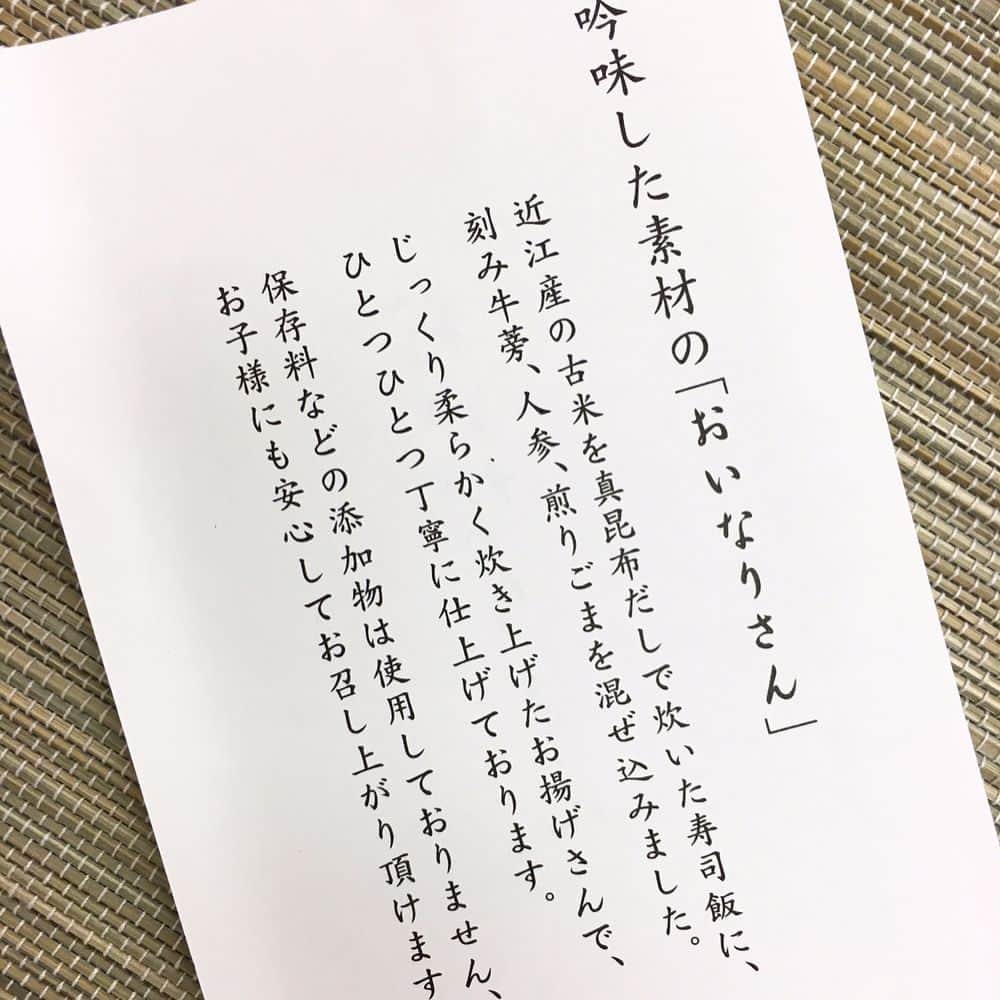 吟味した素材の「おいなりさん」
近江産の古米を真昆布だしで炊いた寿司飯に、
刻み牛蒡、人参、煎りごまを混ぜ込みました。
じっくり柔らかく炊き上げたお揚げさんで、
ひとつひとつ丁寧に仕上げております。
保存料などの添加物は使用しておりません、
お子様にも安心してお召し上がり頂けます